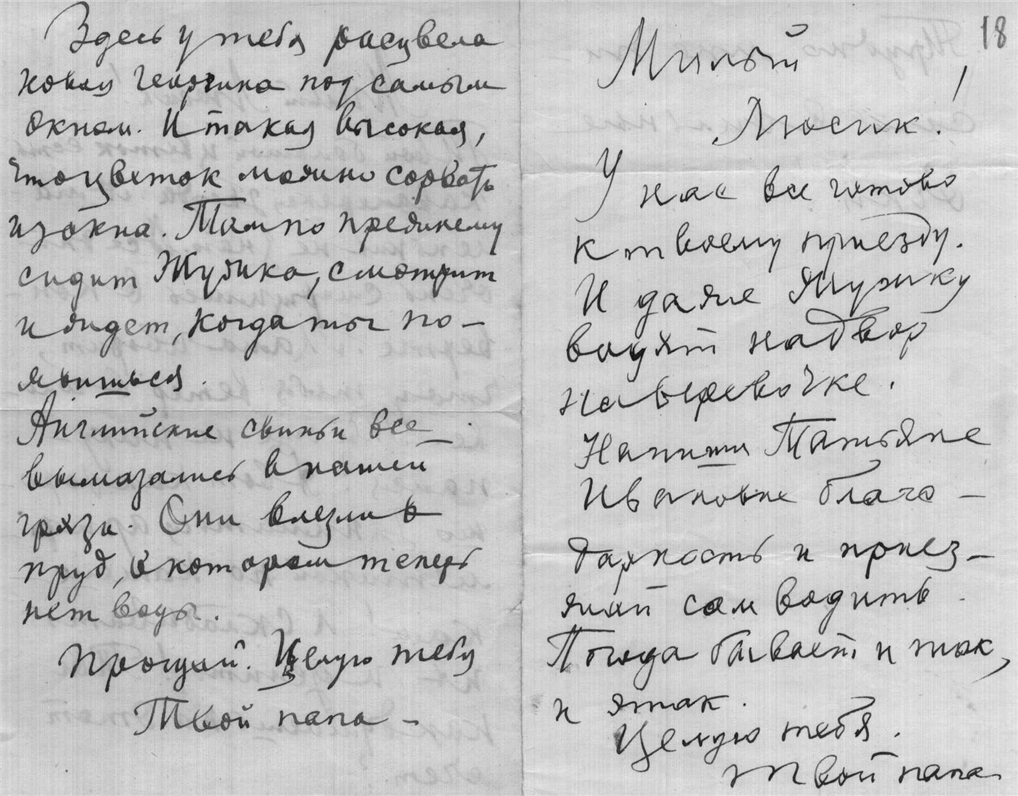 Здесь у тебя расцвела
новая георгина под самым
окном. И такая высокая,
что цветок можно сорвать
из окна. Там по прежнему
сидит Жулика, смотрит
и ждет, когда ты по-
явишься.
Английские свиньи все
вымазались в нашей
грязи. Они влезли в
пруд, в котором теперь
нет воды.
Прощай. Целую тебя
Твой папа -
18
Милый
Люсик!
У нас все готово
к твоему приезду.
И даже
водят на двор
на веревочке.
Напиши Татьяне
Ивановне благо-
дарность и приез-
жай сам водить.
Погода бывает и так,
и этак.
Целую тебя.
Твой папа